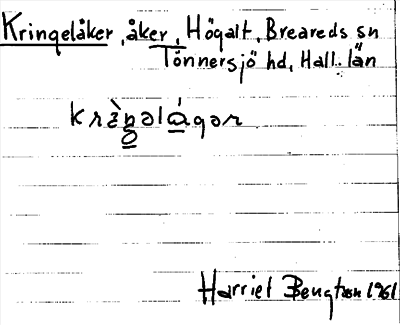 Kringelåker, åker, Högalt, Breareds sn
Tönnersjö hd, Hall. län
Harriet Bengtson 1961